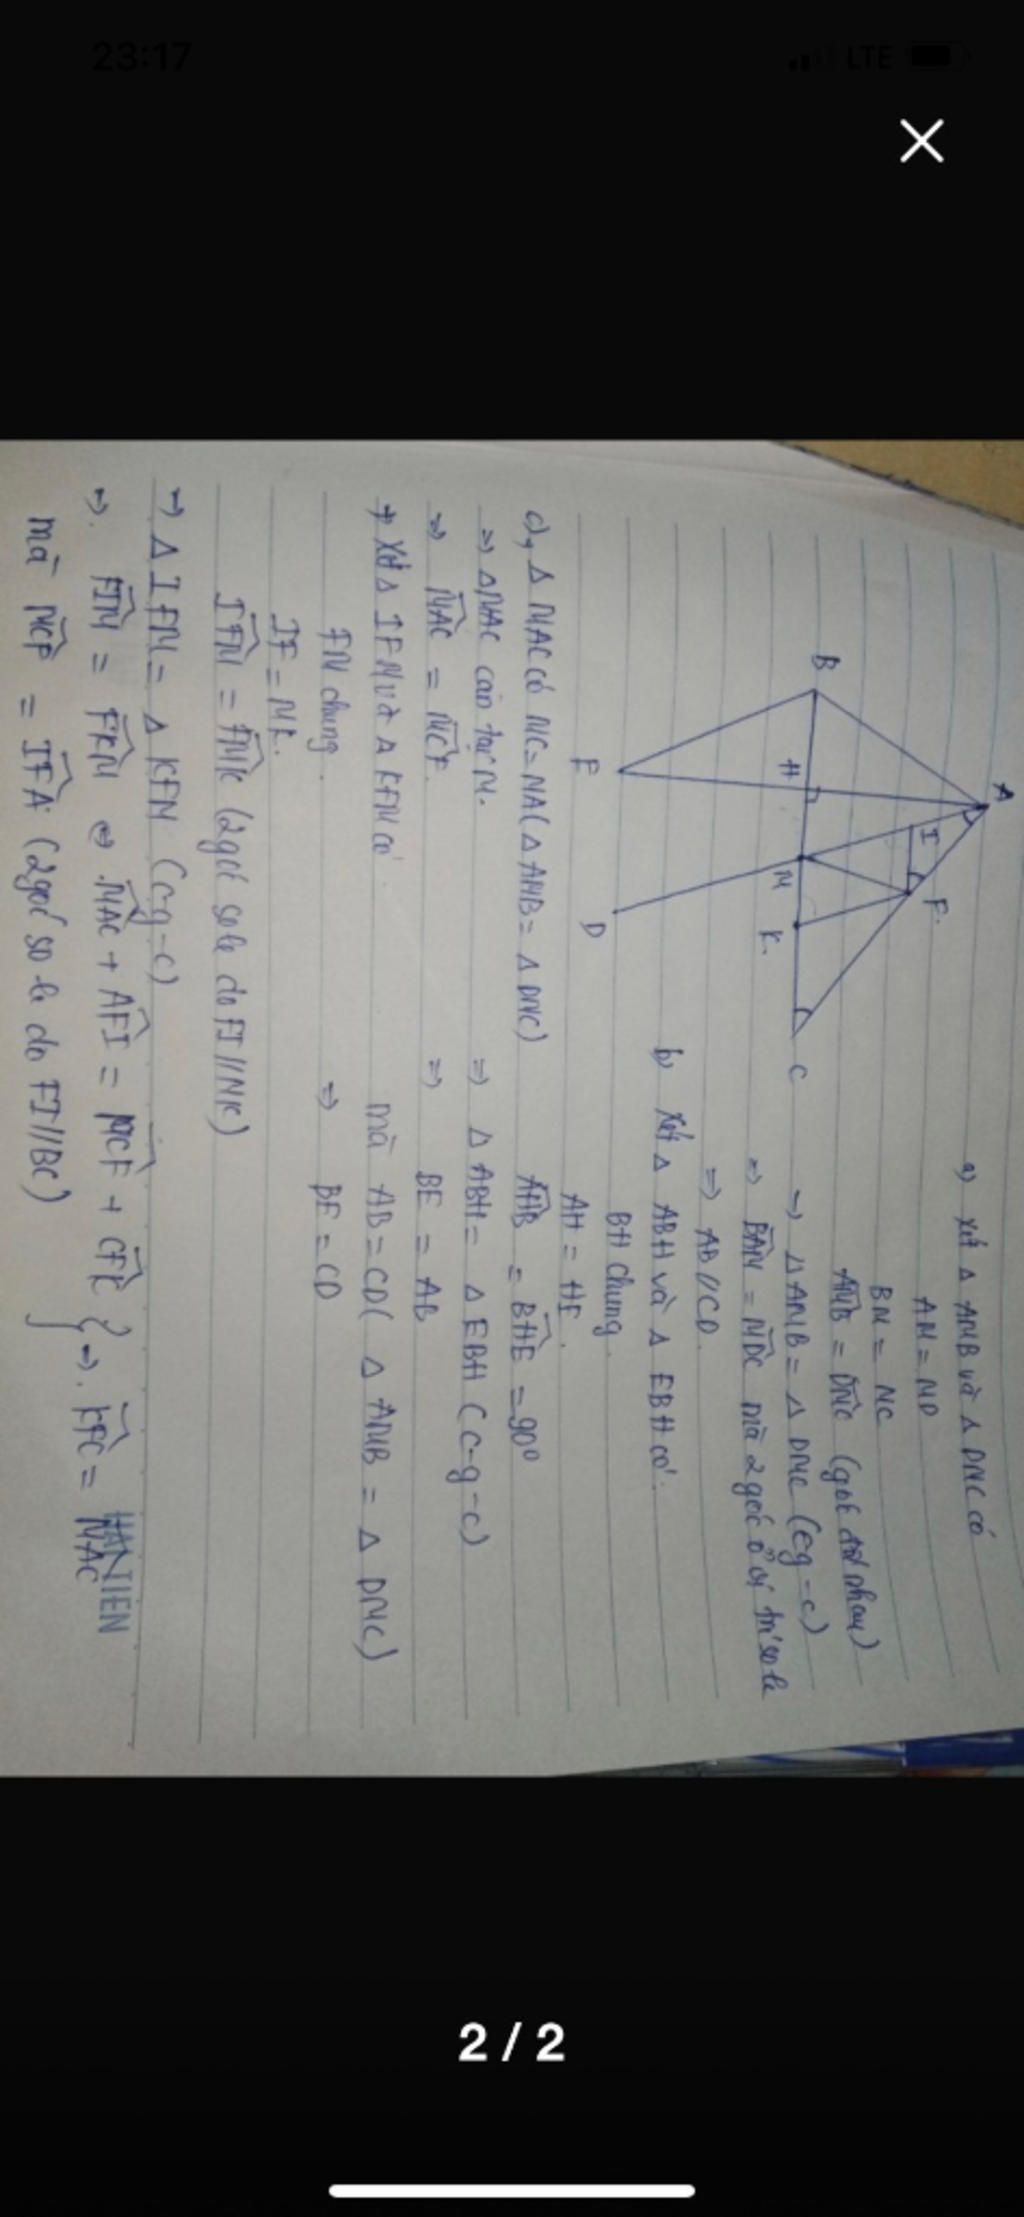 23:17
LTE
A
I
F.
B
H
M
K.
C
E
D
a) Xét Δ AMB và Δ DMC có
AM = MD
BM = MC
AMB = DMC (góc đối đỉnh)
→ Δ AMB = Δ DMC (cg-c)
=> BAM = MDC mà 2 góc ở vị trí so le
=> AB // CD.
b) Xét Δ ABH và Δ EBH có.
BH chung.
AH = HE.
AHB = BHE = 90°
=> Δ ABH = Δ EBH (c-g-c)
=> BE = AB
mà AB = CD ( Δ AMB = Δ DMC)
=> BE = CD
c), Δ MAC có MC = MA ( Δ AMB = Δ DMC)
=> Δ MAC cân tại M.
=> MAC = MCF.
+ Xét Δ IFM và Δ KFM có
FM chung.
IF = MK.
IFM = FMK (2 góc so le do FI // MK)
→ Δ IFM = Δ KFM (c-g-c)
=>. FIM = FKM <=> MAC + AFI = MCF + CFK } =>. KFC = MAC
mà MCF = IFA (2 góc so le do FI // BC)
2 / 2